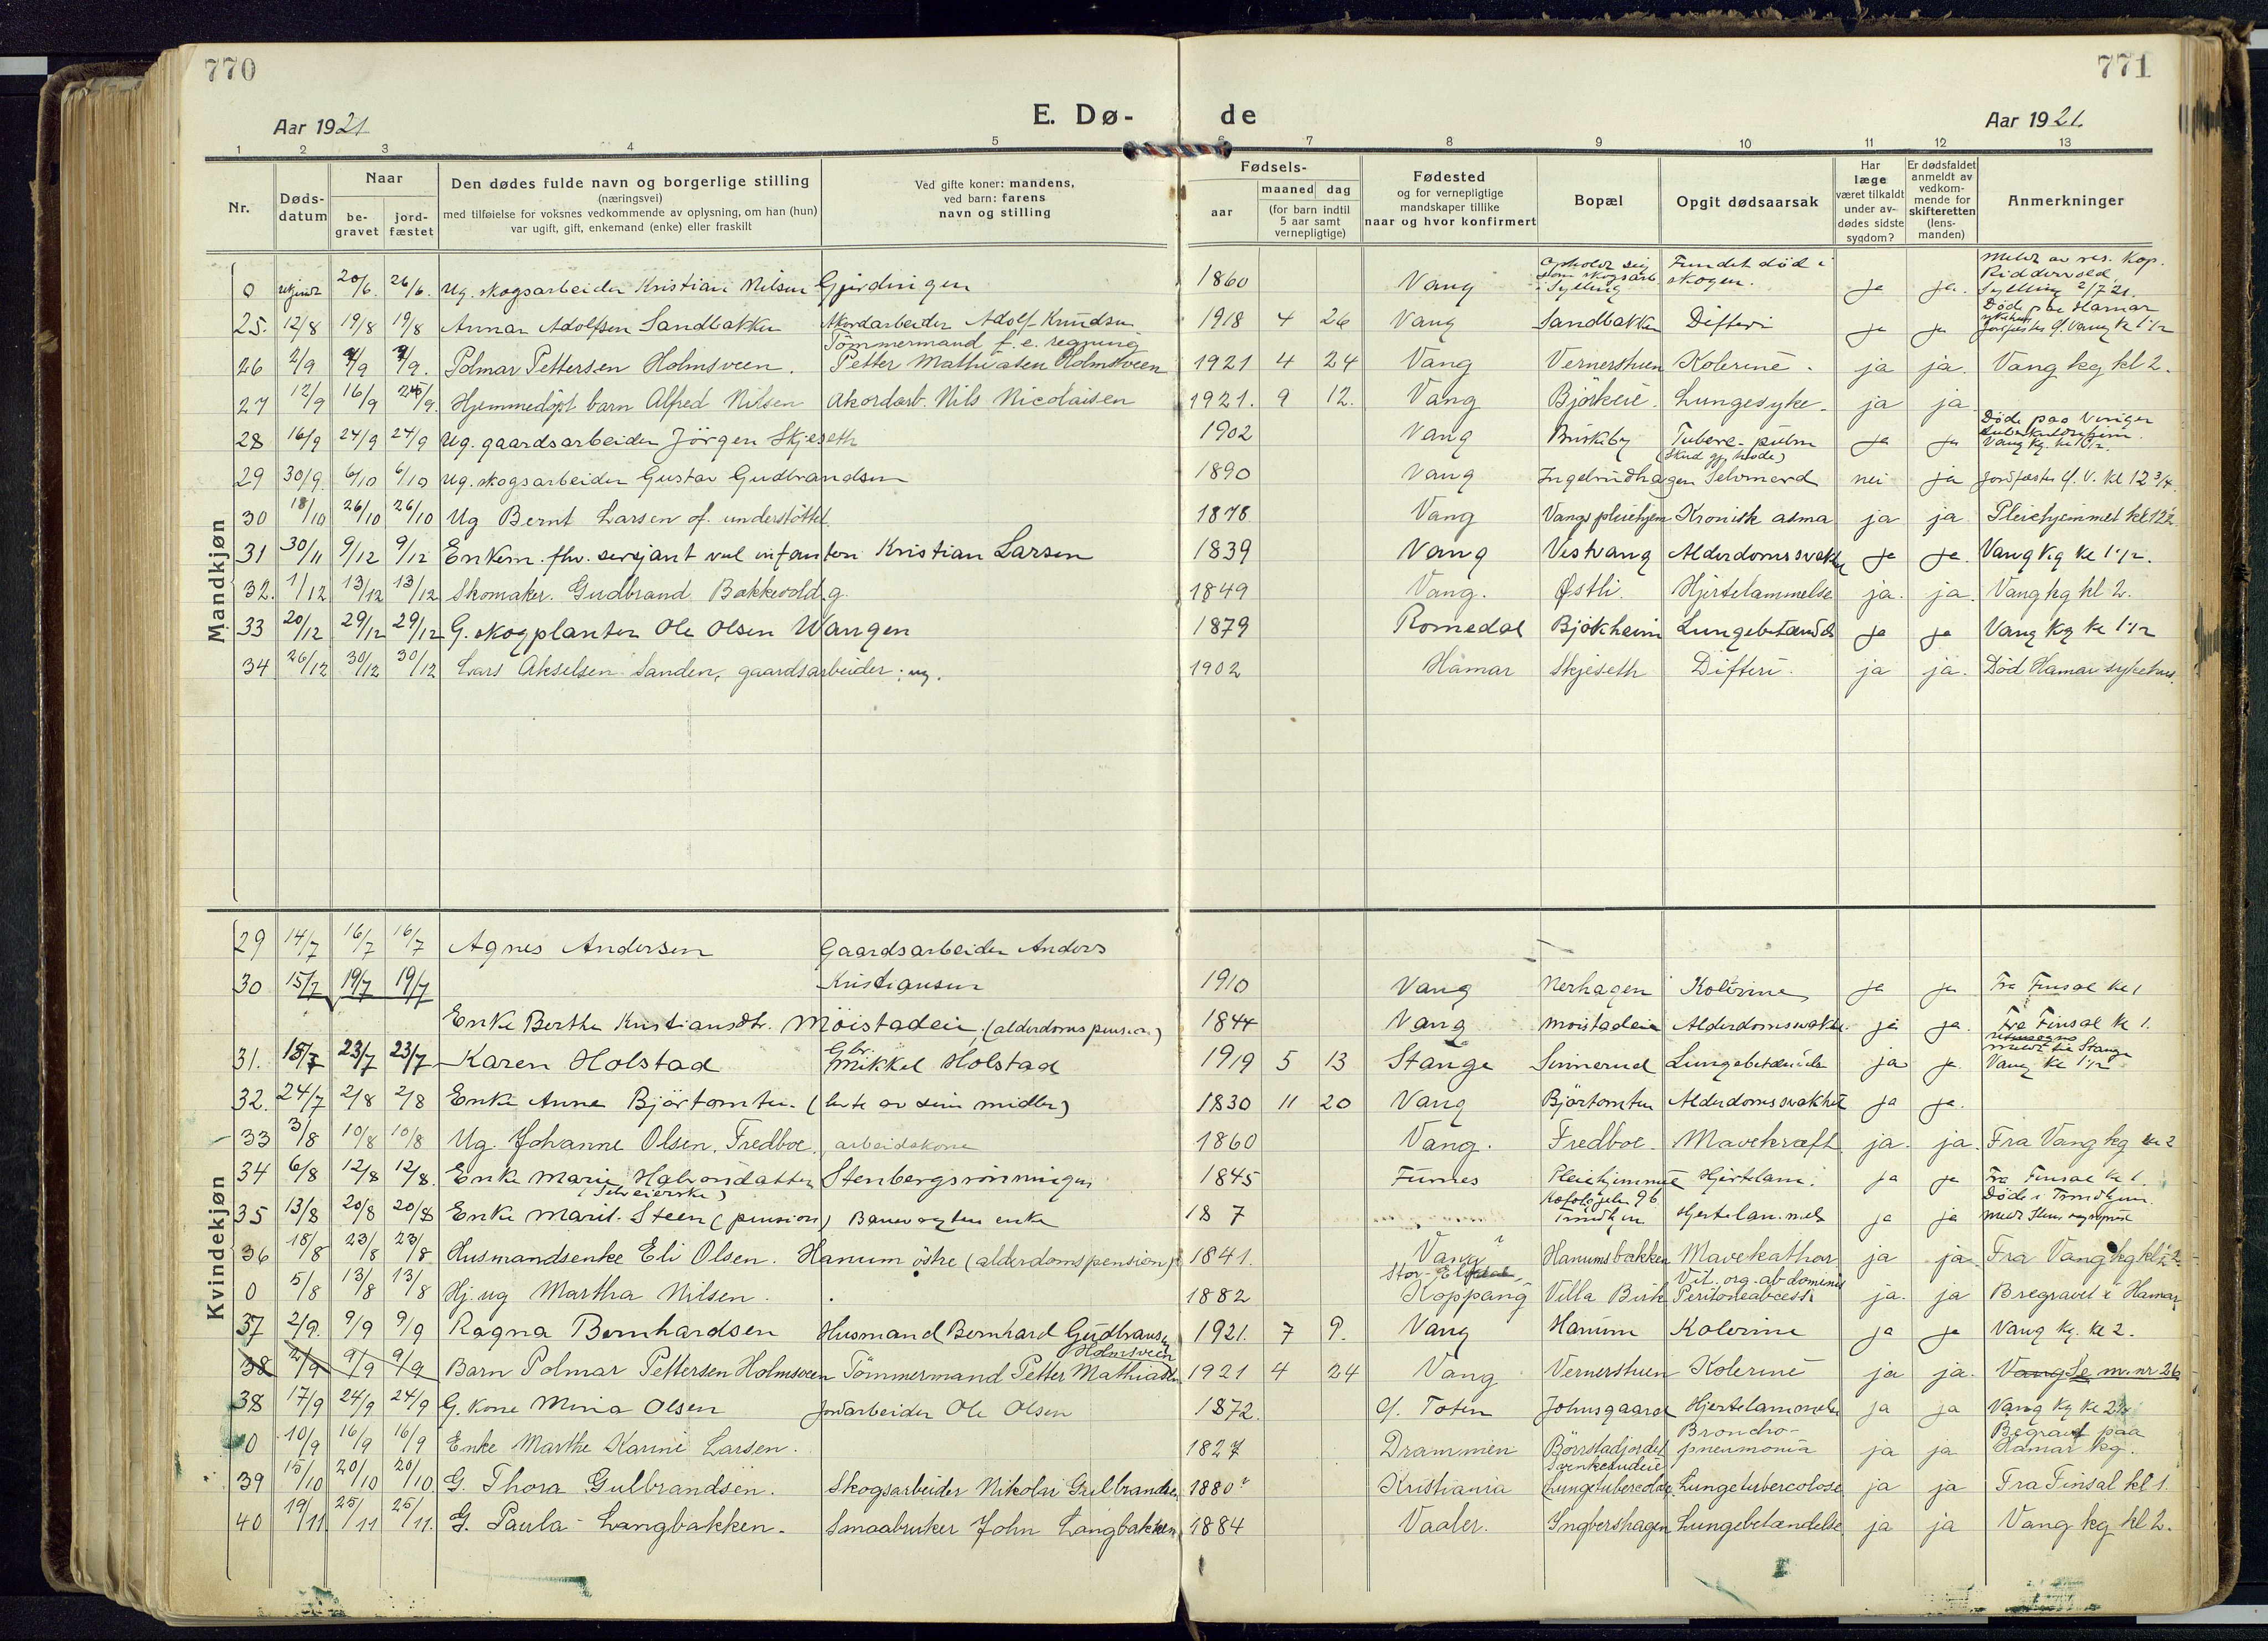 770
771
Aar 1921
E. Dø-
de
Aar 1921.
1 2 3 4 5 6 7 8 9 10 11 12 13
Nr.
Døds-
datum
Naar
be-
gravet
jord-
fæstet
Den dødes fulde navn og borgerlige stilling
(næringsvei)
med tilføielse for voksnes vedkommende av oplysning, om han (hun)
var ugift, gift, enkemand (enke) eller fraskilt
Ved gifte koner: mandens,
ved barn: farens
navn og stilling
Fødsels-
aar
maaned dag
(for barn indtil
5 aar samt
vernepligtige)
Fødested
og for vernepligtige
mandskaper tillike
naar og hvor konfirmert
Bopæl
Opgit dødsaarsak
Har
læge
været tilkaldt
under av-
dødes sidste
sygdom?
Er dødsfaldet
anmeldt av
vedkom-
mende for
skifteretten
(lens-
manden)
Anmerkninger
Mandkjøn
0 ukjendt 20/6. 26/6. Ug. skogsarbeider Kristian Nilsen Gjerdingen 1860 Vang Opholdt sig som skogsarb. i Sylling Fundet død i skogen. ja ja. Meldt av res. kap. Riddervold Sylling 2/7 21.
25. 12/8 19/8 19/8 Annar Adolfsen Sandbakken Akordarbeider Adolf Knudsen 1918 4 26 Vang Sandbakken Difteri ja ja Død paa Hamar sykehus jordfæstet Ø. Vang kl 1 1/2
26 2/9 9/9 9/9. Polmar Pettersen Holmsveen. Tømmermand f. e. regning Petter Mathiasen Holmsveen 1921 4 24 Vang Vernersthuen Kolerine. ja ja. Vang kg kl 2.
27 12/9 16/9 25/9. Hjemmedøpt barn Alfred Nilsen Akordarb. Nils Nicolaisen 1921. 9 12. Vang Bjørkeie. Lungesyke. ja ja
28 16/9 24/9 24/9 Ug. gaardsarbeider Jørgen Skjeseth 1902 Vang Buskeby Tuberc. pulm ja ja Døde paa Vinger tuberkulosehjem. Vang kg. kl 1 1/2.
29 30/9. 6/10 6/10 Ug. skogsarbeider Gustav Gudbrandsen 1890 Vang Ingelrudhagen (Skud gj. hode) Selvmord nei ja Jordfæstet Ø. V. kl 12 3/4.
30 18/10 26/10 26/10 Ug Bernt Larsen of. understøttet. 1878 Vang Vangs pleiehjem Kronisk asma ja ja Pleiehjemmet kl 12 1/2
31 30/11 9/12 9/12 Enkem. fhv. sersjant ved infanteri Kristian Larsen 1839 Vang Vestvang Alderdomssvakhet ja ja. Vang kg kl 1 1/2.
32. 1/12 13/12 13/12 Skomaker. Gudbrand Bakkevold. g. 1849 Vang. Østli. Hjertelammelse ja. ja. Vang kg kl 2.
33 20/12 29/12 29/12 G. skogplanter Ole Olsen Wangen 1879 Romedal Bjøkheim Lungebetændelse ja ja Vang kg kl 1 1/2
34 26/12 30/12 30/12 Lars Akselsen Sanden, gaardsarbeider; ug. 1902 Hamar Skjeseth Difteri. ja ja. Død Hamar sykehus.
Kvindekjøn
29 14/7 16/7 16/7 Agnes Andersen Gaardsarbeider Anders Kristiansen 1910 Vang Nerhagen Kolerine ja ja Fra Finsal kl 1
30 15/7 19/7 19/7 Enke Berthe Kristiansdtr. Møistadeie. (alderdomspension) 1844 Vang Moistadeie Alderdomssvakhet. ja ja. Fra Finsal kl 1.
31. 18/7 23/7 23/7 Karen Holstad Gbr. Mikkel Holstad 1919 5 13 Stange Sinnerud Lungebetændelse ja ja meldt til Stange Vang kl 1 1/2
32. 24/7 2/8 2/8 Enke Anne Bjørtomten. (levte av sine midler) 1830 11 20 Vang Bjørtomten Alderdomssvakhet ja ja.
33 3/8 10/8 10/8 Ug. Johanne Olsen. Fredboe, arbeidskone 1860 Vang. Fredboe. Mavekræft ja. ja. Fra Vang kg kl 2
34 6/8 12/8 12/8. Enke Marie Halvorsdatter Stenbergsrønningen (Selveierske) 1845 Furnes Pleiehjemmet Hjertelam. ja ja Fra Finsal kl 1.
35 13/8 20/8 20/8 Enke Marit. Steen (pension) Banevogter enke 18 7 96 Trondhjem Hjertelammelse ja ja Døde i Trondhjem.
36 18/8 23/8 23/8 Husmandsenke Eli Olsen. Hanum østre (alderdomspension). 1841. Vang Hanumsbakken Mavekathar ja ja. Fra Vang kg kl 2
0 5/8 13/8 13/8 Hj. ug Martha Nilsen. 1882 Stor-Elvdal, Koppang Villa Birk Vit. org. abdominis Peritoneabcess ja. ja Bregravet i Hamar
37 2/9. 9/9 9/9 Ragna Bernhardsen Husmand Bernhard Gudbransen 1921. 7 9. Vang Hanum Kolerine ja ja Vang kg. kl 2.
38 2/9 9/9 9/9 Barn Polmar Pettersen Holmsveen Tømmermand Petter Mathiasen Holmsveen 1921 4 24 Vang Vernersthuen Kolerine ja ja. Vang Se m. nr 26
38 17/9 24/9 24/9 G. kone Mina Olsen Jordarbeider Ole Olsen 1872. Ø. Toten Johnsgaard Hjertelammelse ja ja Vang kg kl 2 1/2
0 10/9 16/9 16/9 Enke Marthe Karine Larsen. 1827 Drammen Børrstadjordet Broncho-pneumonia ja ja Begravet paa Hamar kg.
39 15/10 20/10 20/10 G. Thora Gulbrandsen. Skogsarbeider Nikolai Gulbrandsen 1880? Kristiania (Lungetubercolose) Lungetubercolose ja ja Fra Finsal kl 1.
40 19/11 25/11 25/11. G. Paula Langbakken. Smaabruker John Langbakken 1884 Vaaler. Yngbershagen Lungebetændelse ja ja Vang kg kl 2.